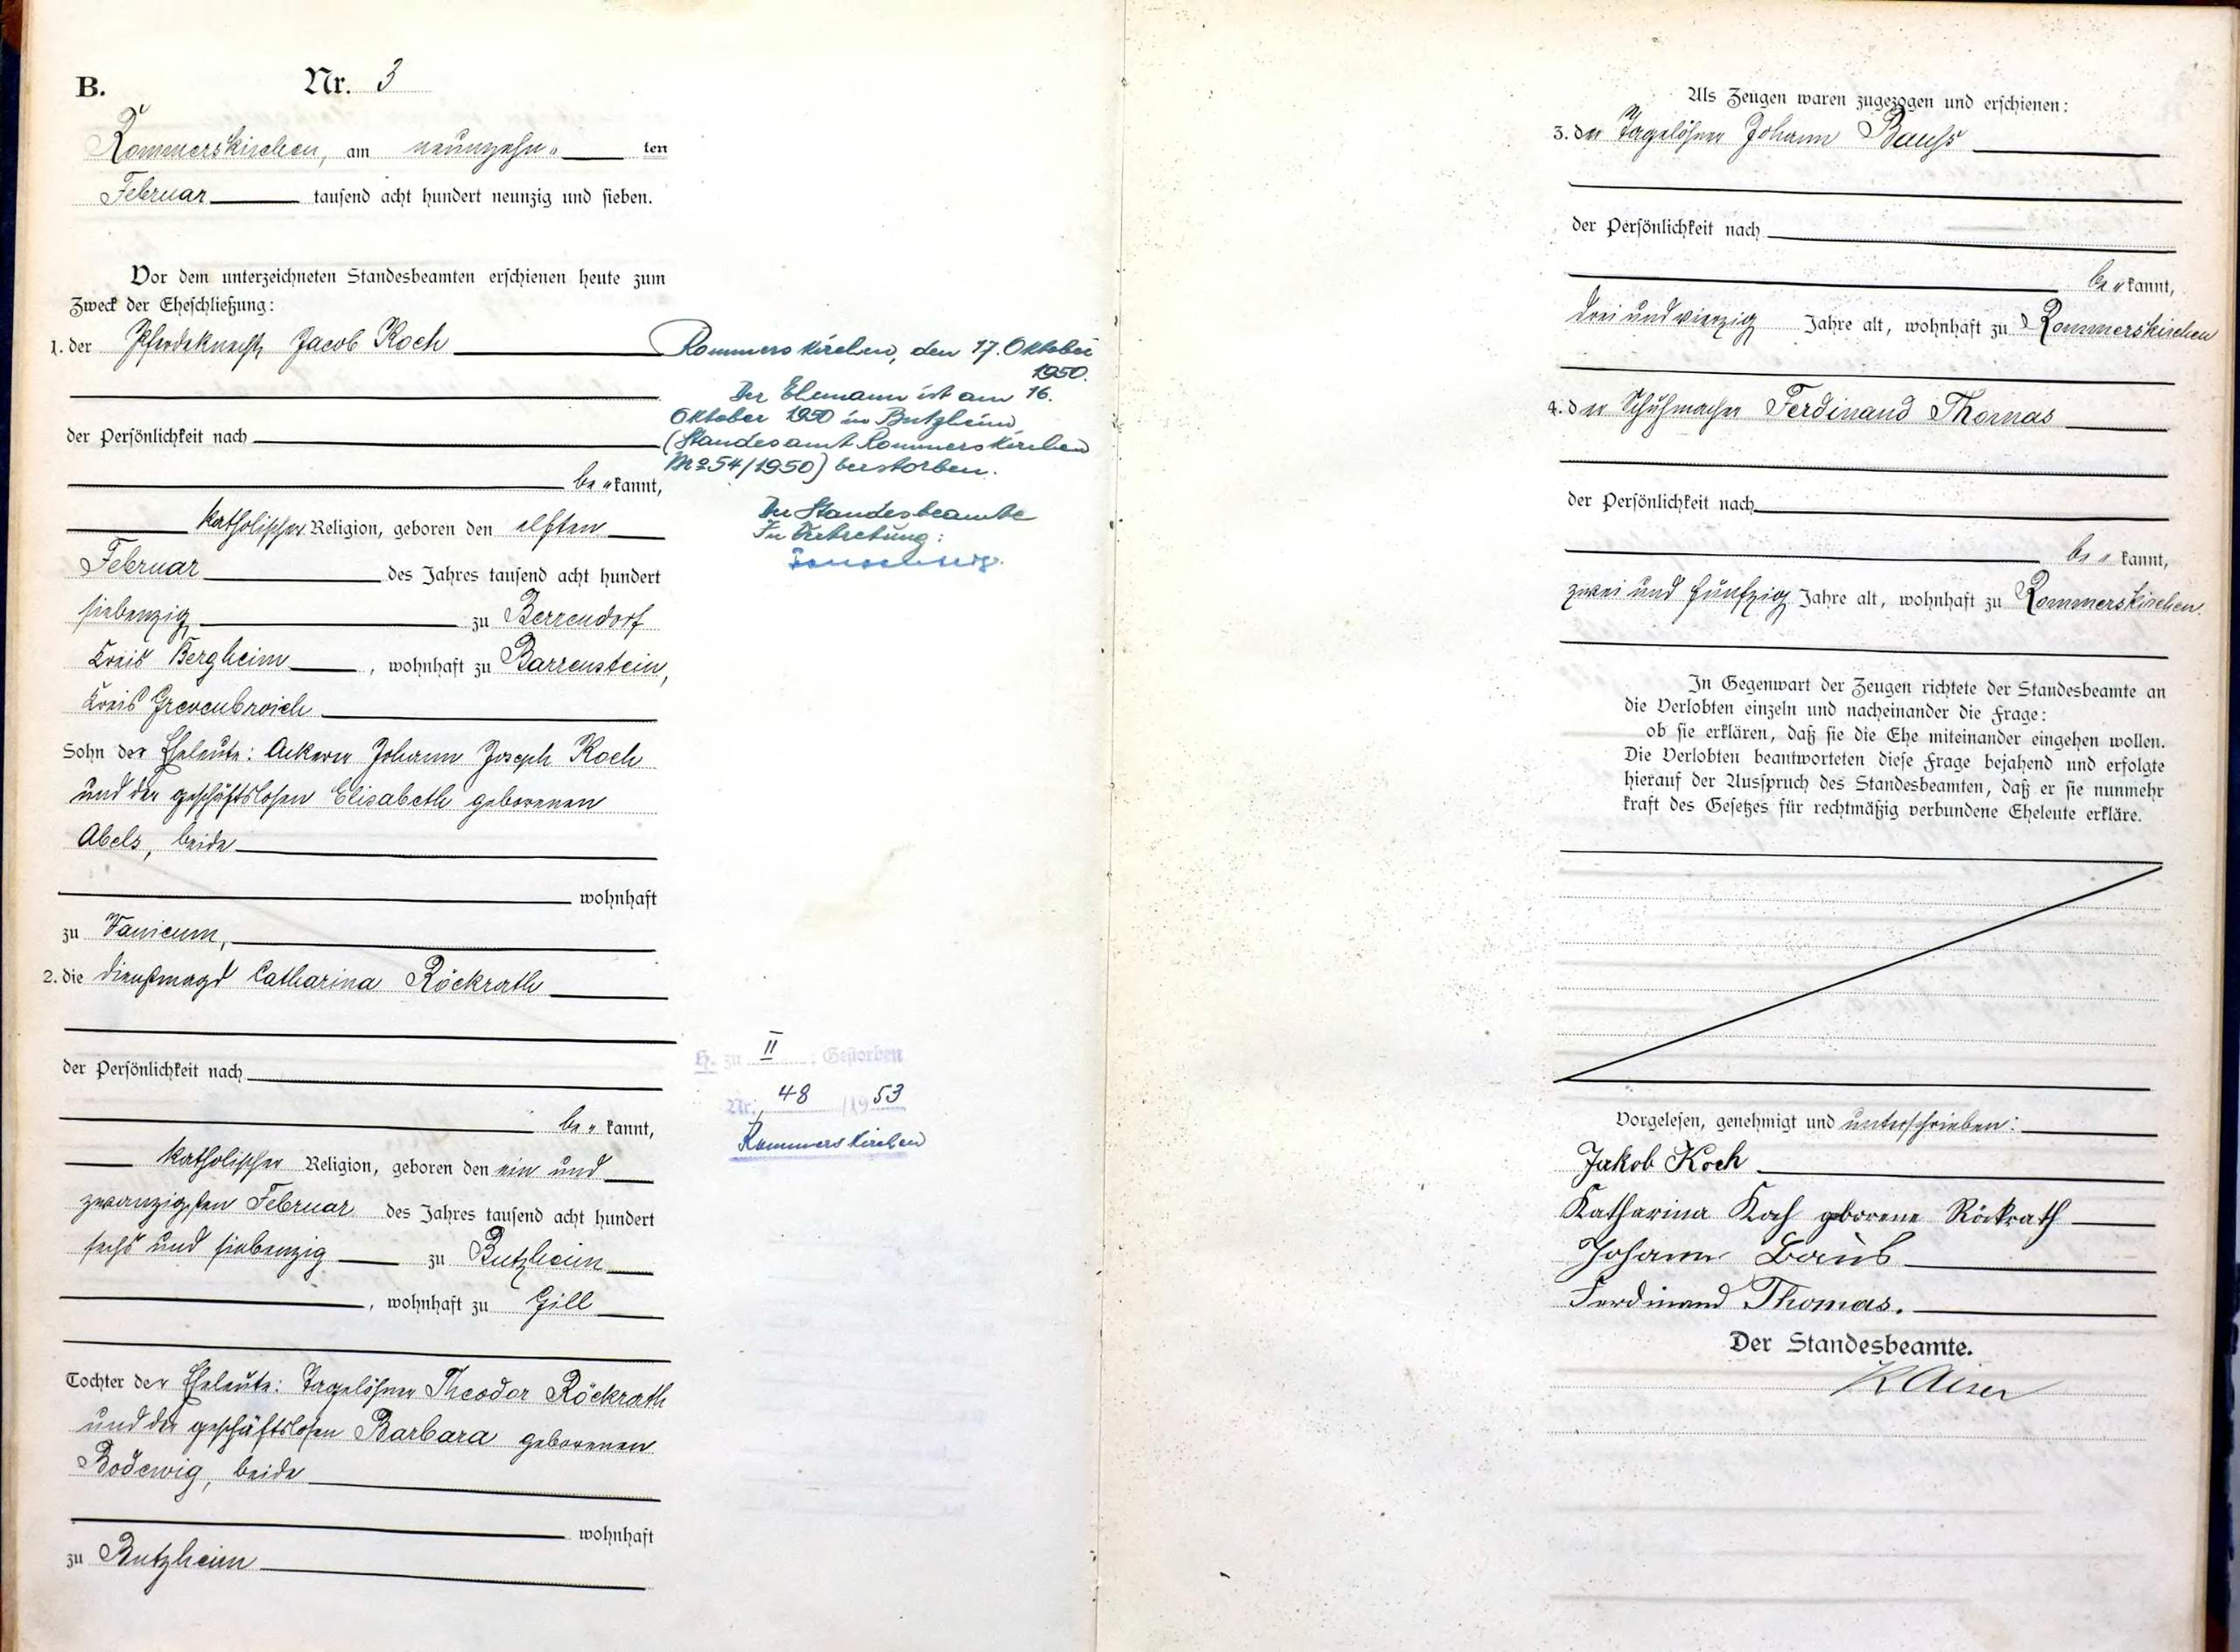 B. Nr. 3
Rommerskirchen, am neunzehn„ ten
Februar tausend acht hundert neunzig und sieben.
Vor dem unterzeichneten Standesbeamten erschienen heute zum
Zweck der Eheschließung:
1. der Pferdeknecht Jacob Koch
der Persönlichkeit nach
be„kannt,
katholischer Religion, geboren den elften
Februar des Jahres tausend acht hundert
siebenzig zu Berrendorf
Kreis Bergheim, wohnhaft zu Barrenstein,
Kreis Grevenbroich
Sohn der Eheleute: Ackerer Johann Joseph Koch
und der geschäftslosen Elisabeth geborenen
Abels, beide
wohnhaft
zu Vanicum,
2. die Dienstmagd Catharina Röckrath
der Persönlichkeit nach
be„kannt,
katholischer Religion, geboren den ein und
zwanzigsten Februar des Jahres tausend acht hundert
sechs und siebenzig zu Butzheim
, wohnhaft zu Gill
Tochter der Eheleute: Tagelöhner Theodor Röckrath
und der geschäftslosen Barbara geborenen
Bodewig, beide
wohnhaft
zu Butzheim
Rommerskirchen, den 17. Oktober
1950.
Der Ehemann ist am 16.
Oktober 1950 in Butzheim
(Standesamt Rommerskirchen
Nr 54/1950) verstorben.
Der Standesbeamte
In Vertretung:
H. zu II : Gestorben
Nr. 48 /19 53
Rommerskirchen
Als Zeugen waren zugezogen und erschienen:
3. der Tagelöhner Johann Bauhs
der Persönlichkeit nach
be„kannt,
drei und vierzig Jahre alt, wohnhaft zu Rommerskirchen
4. der Schuhmacher Ferdinand Thomas
der Persönlichkeit nach
be„kannt,
zwei und fünfzig Jahre alt, wohnhaft zu Rommerskirchen.
In Gegenwart der Zeugen richtete der Standesbeamte an
die Verlobten einzeln und nacheinander die Frage:
ob sie erklären, daß sie die Ehe miteinander eingehen wollen.
Die Verlobten beantworteten diese Frage bejahend und erfolgte
hierauf der Ausspruch des Standesbeamten, daß er sie nunmehr
kraft des Gesetzes für rechtmäßig verbundene Eheleute erkläre.
Vorgelesen, genehmigt und unterschrieben:
Jakob Koch
Katharina Koch geborene Röckrath
Johann Baus
Ferdinand Thomas.
Der Standesbeamte.
Kaiser